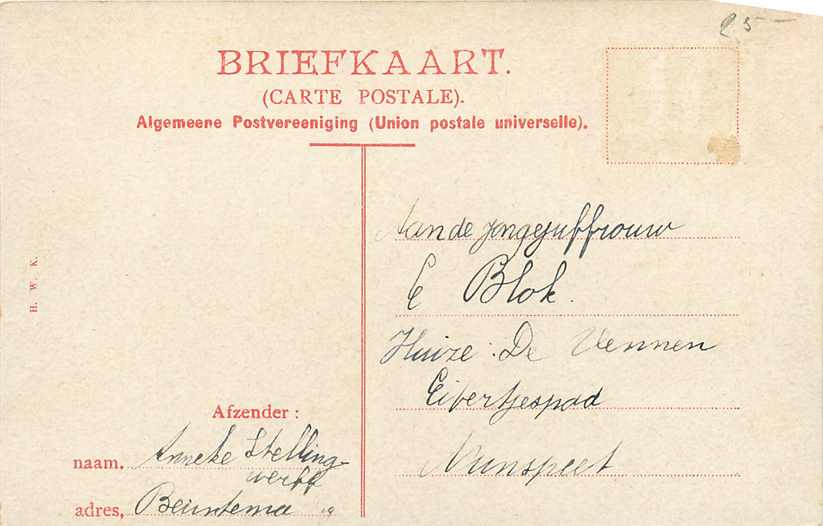 25-
BRIEFKAART.
(CARTE POSTALE).
Algemeene Postvereeniging (Union postale universelle).
Aan de Jongejuffrouw
E Blok.
Huize: De Vennen
Eibertjespad
Nunspeet
H. W. K.
Afzender:
naam. Anneke Stelling-
werff
adres,